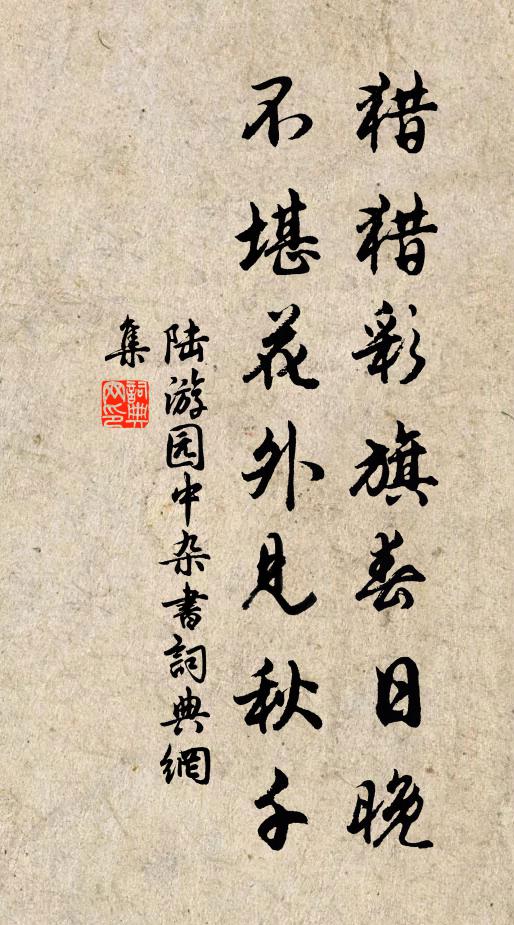 猎猎彩旗春日晚
不堪花外见秋千
陆游园中杂书詞典網
集
詞典
网印